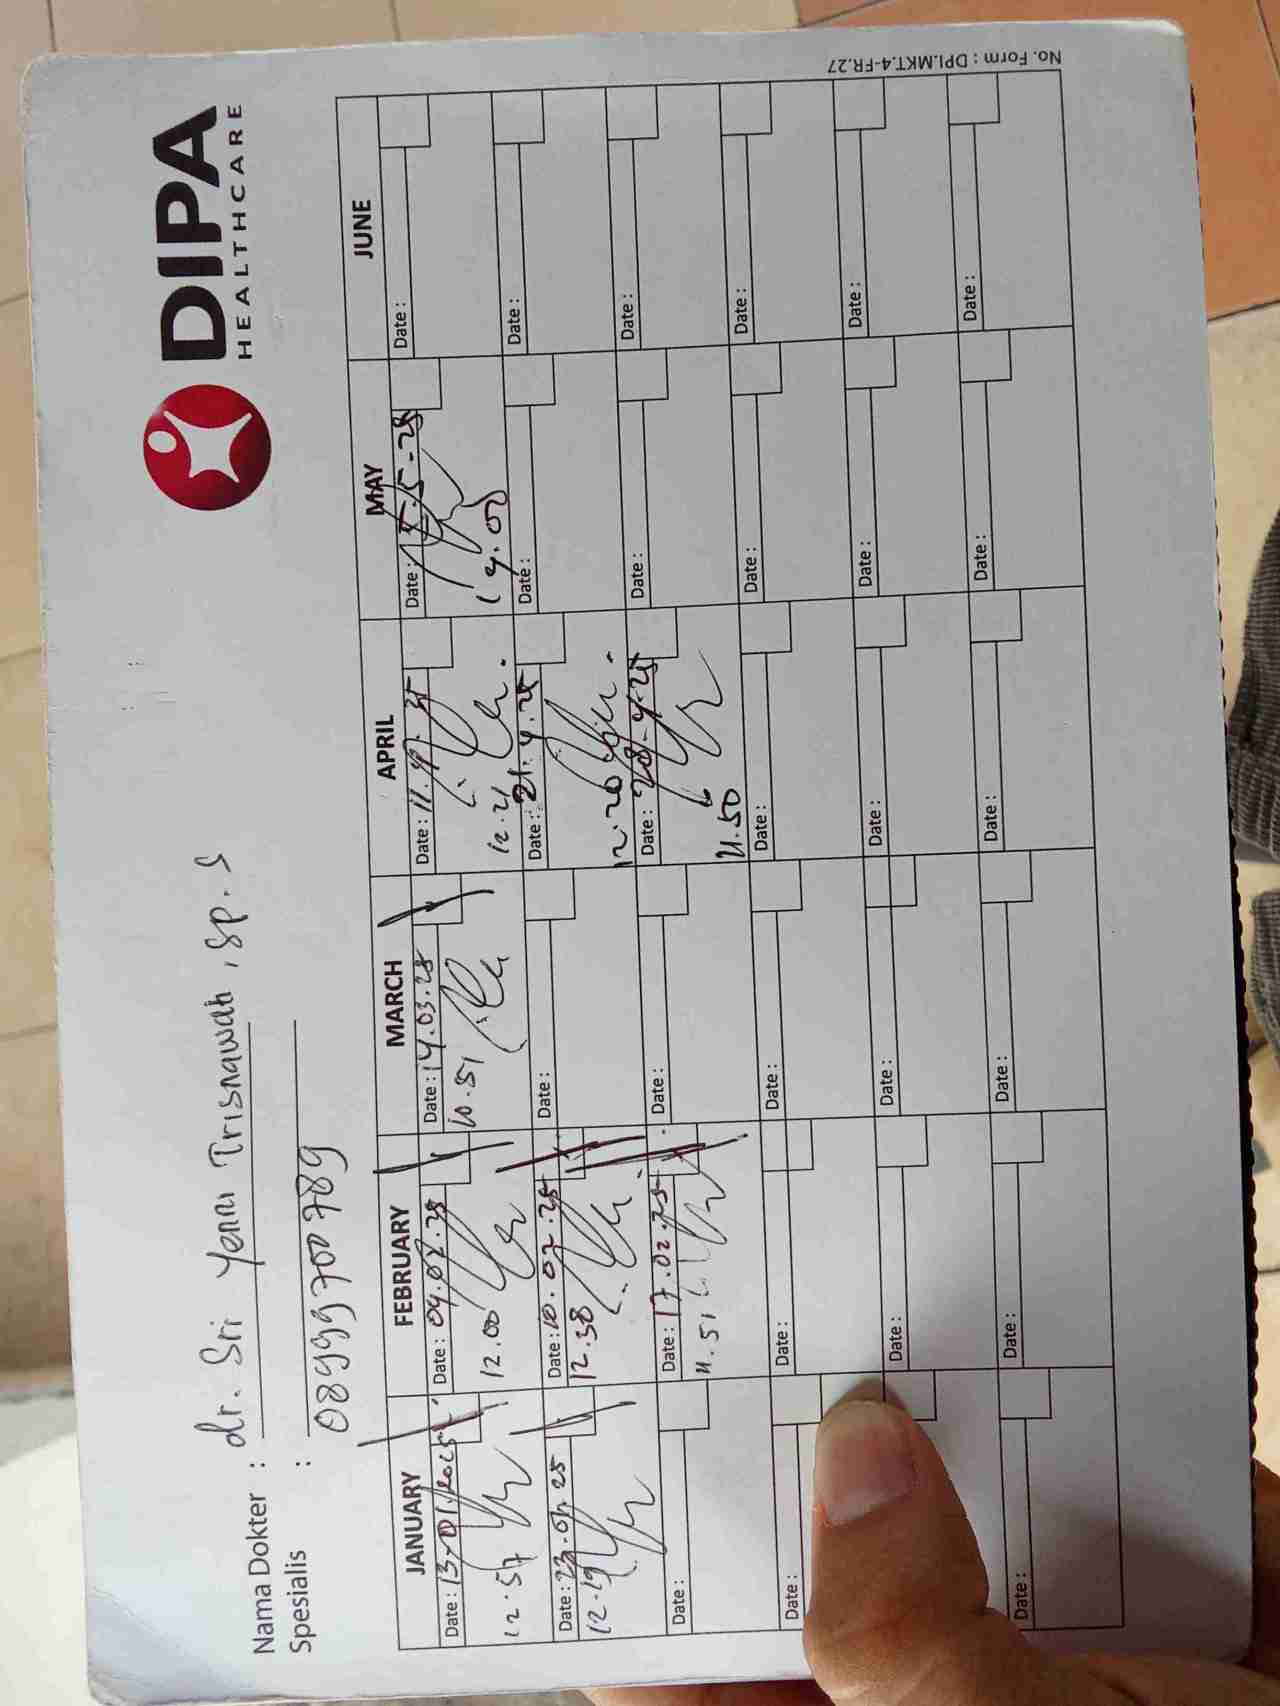 DIPA
HEALTHCARE
Nama Dokter : dr. Sri Yenni Trisnawati, Sp.S
Spesialis :
08999700789
JANUARY FEBRUARY MARCH APRIL MAY JUNE
Date : 13-01-2025 Date : 04.02.25 Date : 14.03.25 Date : 11.4.25 Date : 5-5-25 Date :
12.57 12.00 10.51 12.21 14.05
Date : 23.01.25 Date : 10.02.25 Date : Date : 21.4.25 Date : Date :
12.19 12.38 12.20
Date : Date : 17.02.25 Date : Date : 28-4-25 Date : Date :
11.51 11.50
Date : Date : Date : Date : Date : Date :
Date : Date : Date : Date : Date :
Date : Date : Date : Date : Date :
No. Form : DPI.MKT.4-FR.27